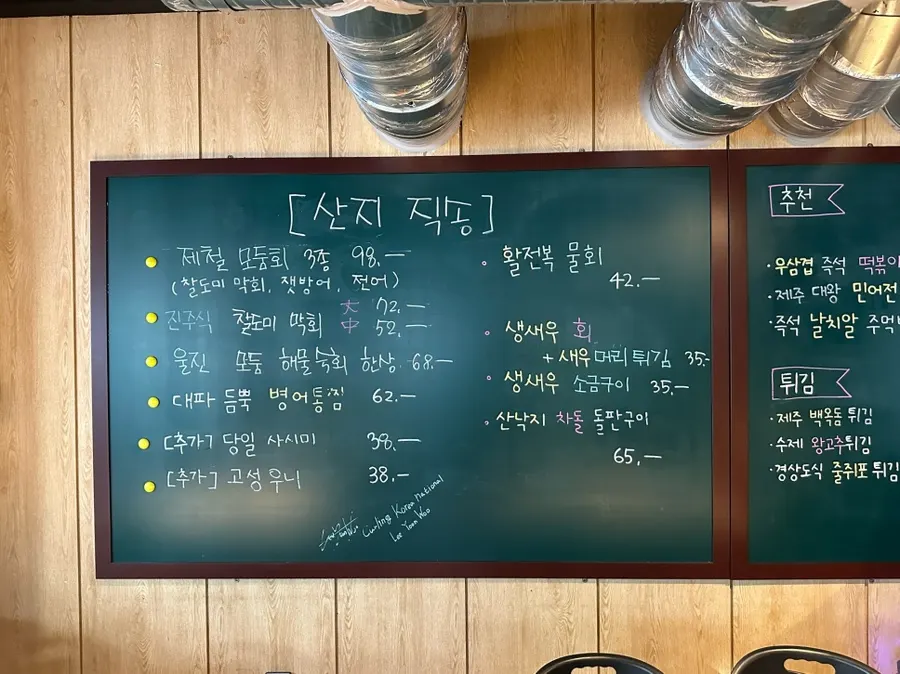 [산지 직송]
제철 모둠회 3종 98.—
(찰도미 막회, 잿방어, 전어)
진주식 찰도미 막회 大 72.—
中 52.—
울진 모둠 해물숙회 한상 68.—
대파 듬뿍 병어통찜 62.—
[추가] 당일 사시미 38.—
[추가] 고성 우니 38.—
Curling Korea National
Lee Yoon Woo
활전복 물회
42.—
생새우 회
+ 새우머리 튀김 35.-
생새우 소금구이 35.—
산낙지 차돌 돌판구이
65.—
추천
·우삼겹 즉석 떡볶이
·제주 대왕 민어전
·즉석 날치알 주먹밥
튀김
·제주 백옥돔 튀김
·수제 왕고추튀김
·경상도식 줄쥐포 튀김